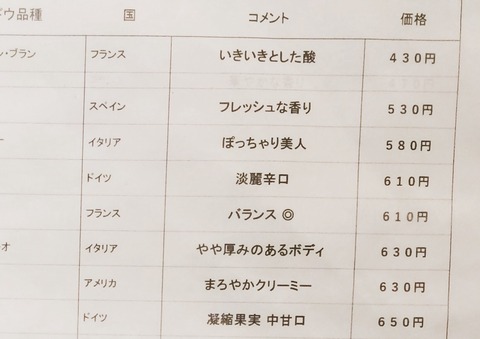 ドウ品種 国 コメント 価格
ン・ブラン フランス いきいきとした酸 430円
スペイン フレッシュな香り 530円
イタリア ぽっちゃり美人 580円
ドイツ 淡麗辛口 610円
フランス バランス ◎ 610円
オ イタリア やや厚みのあるボディ 630円
アメリカ まろやかクリーミー 630円
ドイツ 凝縮果実 中甘口 650円